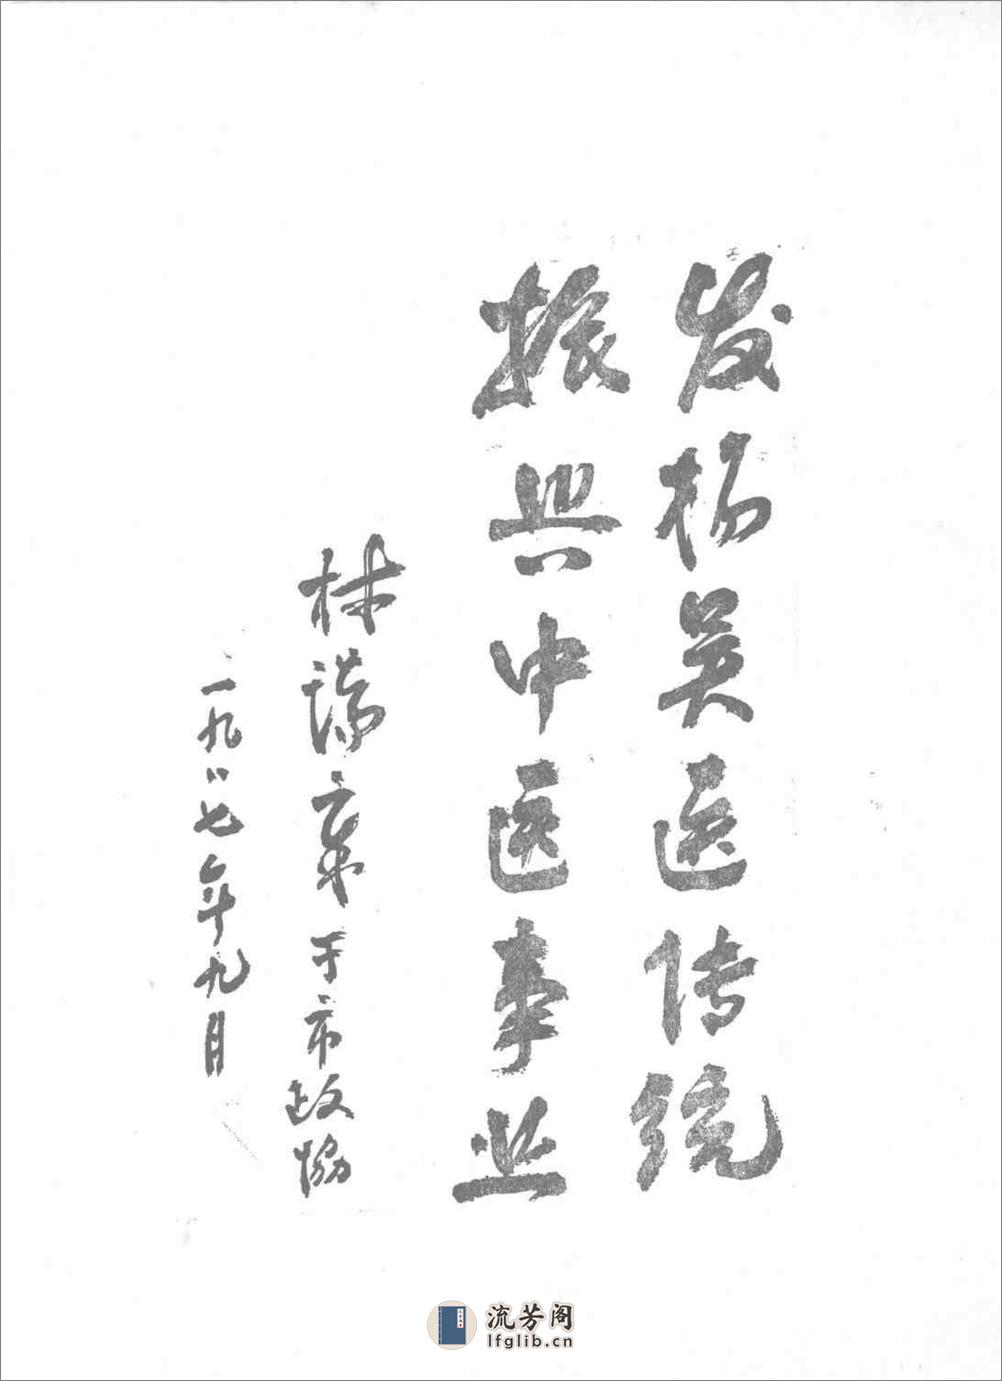 发扬吴医传统
振兴中医事业
林瑞章于市政协
一九八七年九月
流芳阁
lfglib.cn